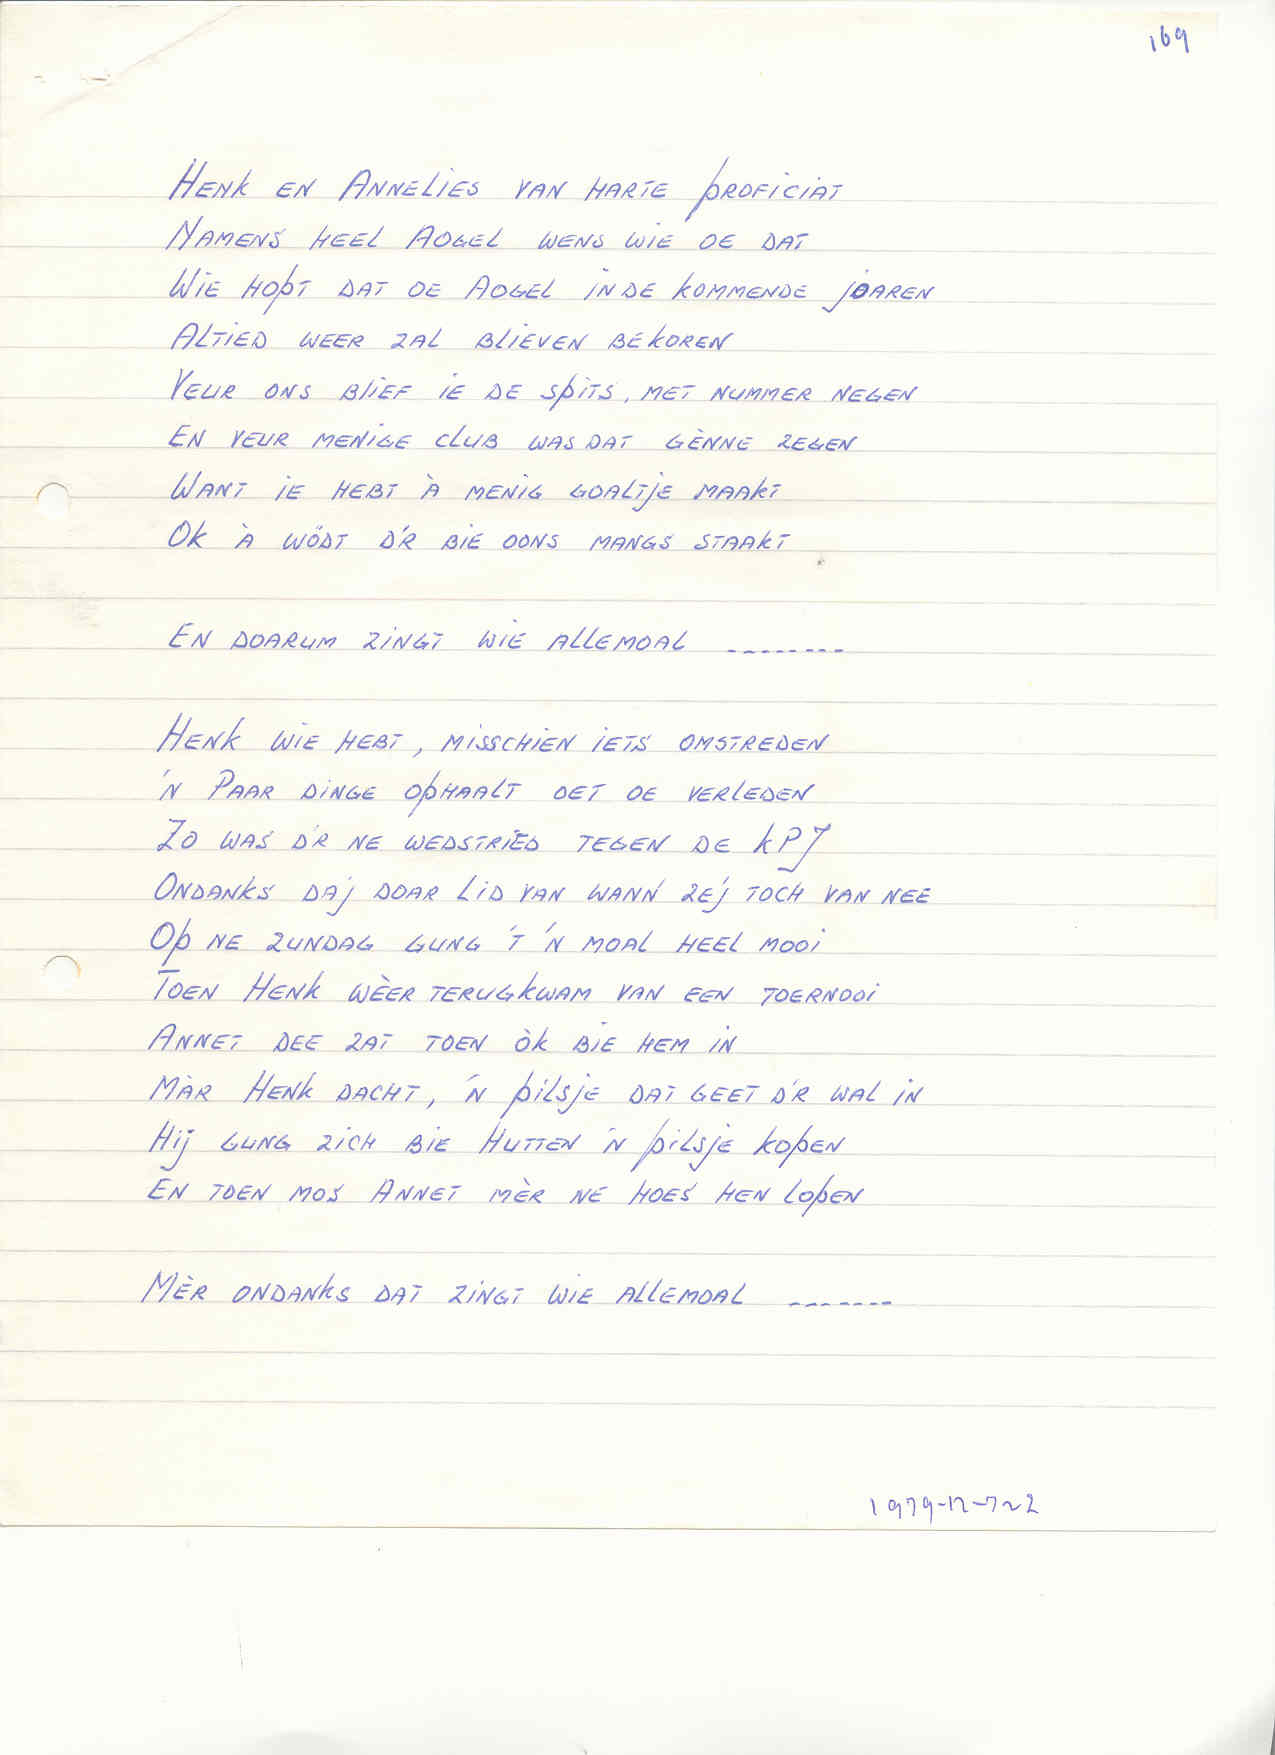 169
HENK EN ANNELIES VAN HARTE PROFICIAT
NAMENS HEEL AOGEL WENS WIE OE DAT
WIE HOPT DAT OE AOGEL IN DE KOMMENDE JOAREN
ALTIED WEER ZAL BLIEVEN BEKOREN
VEUR ONS BLIEF IE DE SPITS, MET NUMMER NEGEN
EN VEUR MENIGE CLUB WAS DAT GÈNNE ZEGEN
WANT IE HEBT À MENIG GOALTJE MAAKT
OK À WÖDT D'R BIE OONS MANGS STAAKT
EN DOARUM ZINGT WIE ALLEMOAL --------
HENK WIE HEBT, MISSCHIEN IETS OMSTREDEN
'N PAAR DINGE OPHAALT OET OE VERLEDEN
ZO WAS D'R NE WEDSTRIED TEGEN DE KPJ
ONDANKS DA'J DOAR LID VAN WANN ZE'J TOCH VAN NEE
OP NE ZUNDAG GUNG 'T 'N MOAL HEEL MOOI
TOEN HENK WÈER TERUGKWAM VAN EEN TOERNOOI
ANNET DEE ZAT TOEN ÒK BIE HEM IN
MÀR HENK DACHT, 'N PILSJE DAT GEET D'R WAL IN
HIJ GUNG ZICH BIE HUTTEN 'N PILSJE KOPEN
EN TOEN MOS ANNET MÈR NÉ HOES HEN LOPEN
MÈR ONDANKS DAT ZINGT WIE ALLEMOAL -------
1979-12-7~2